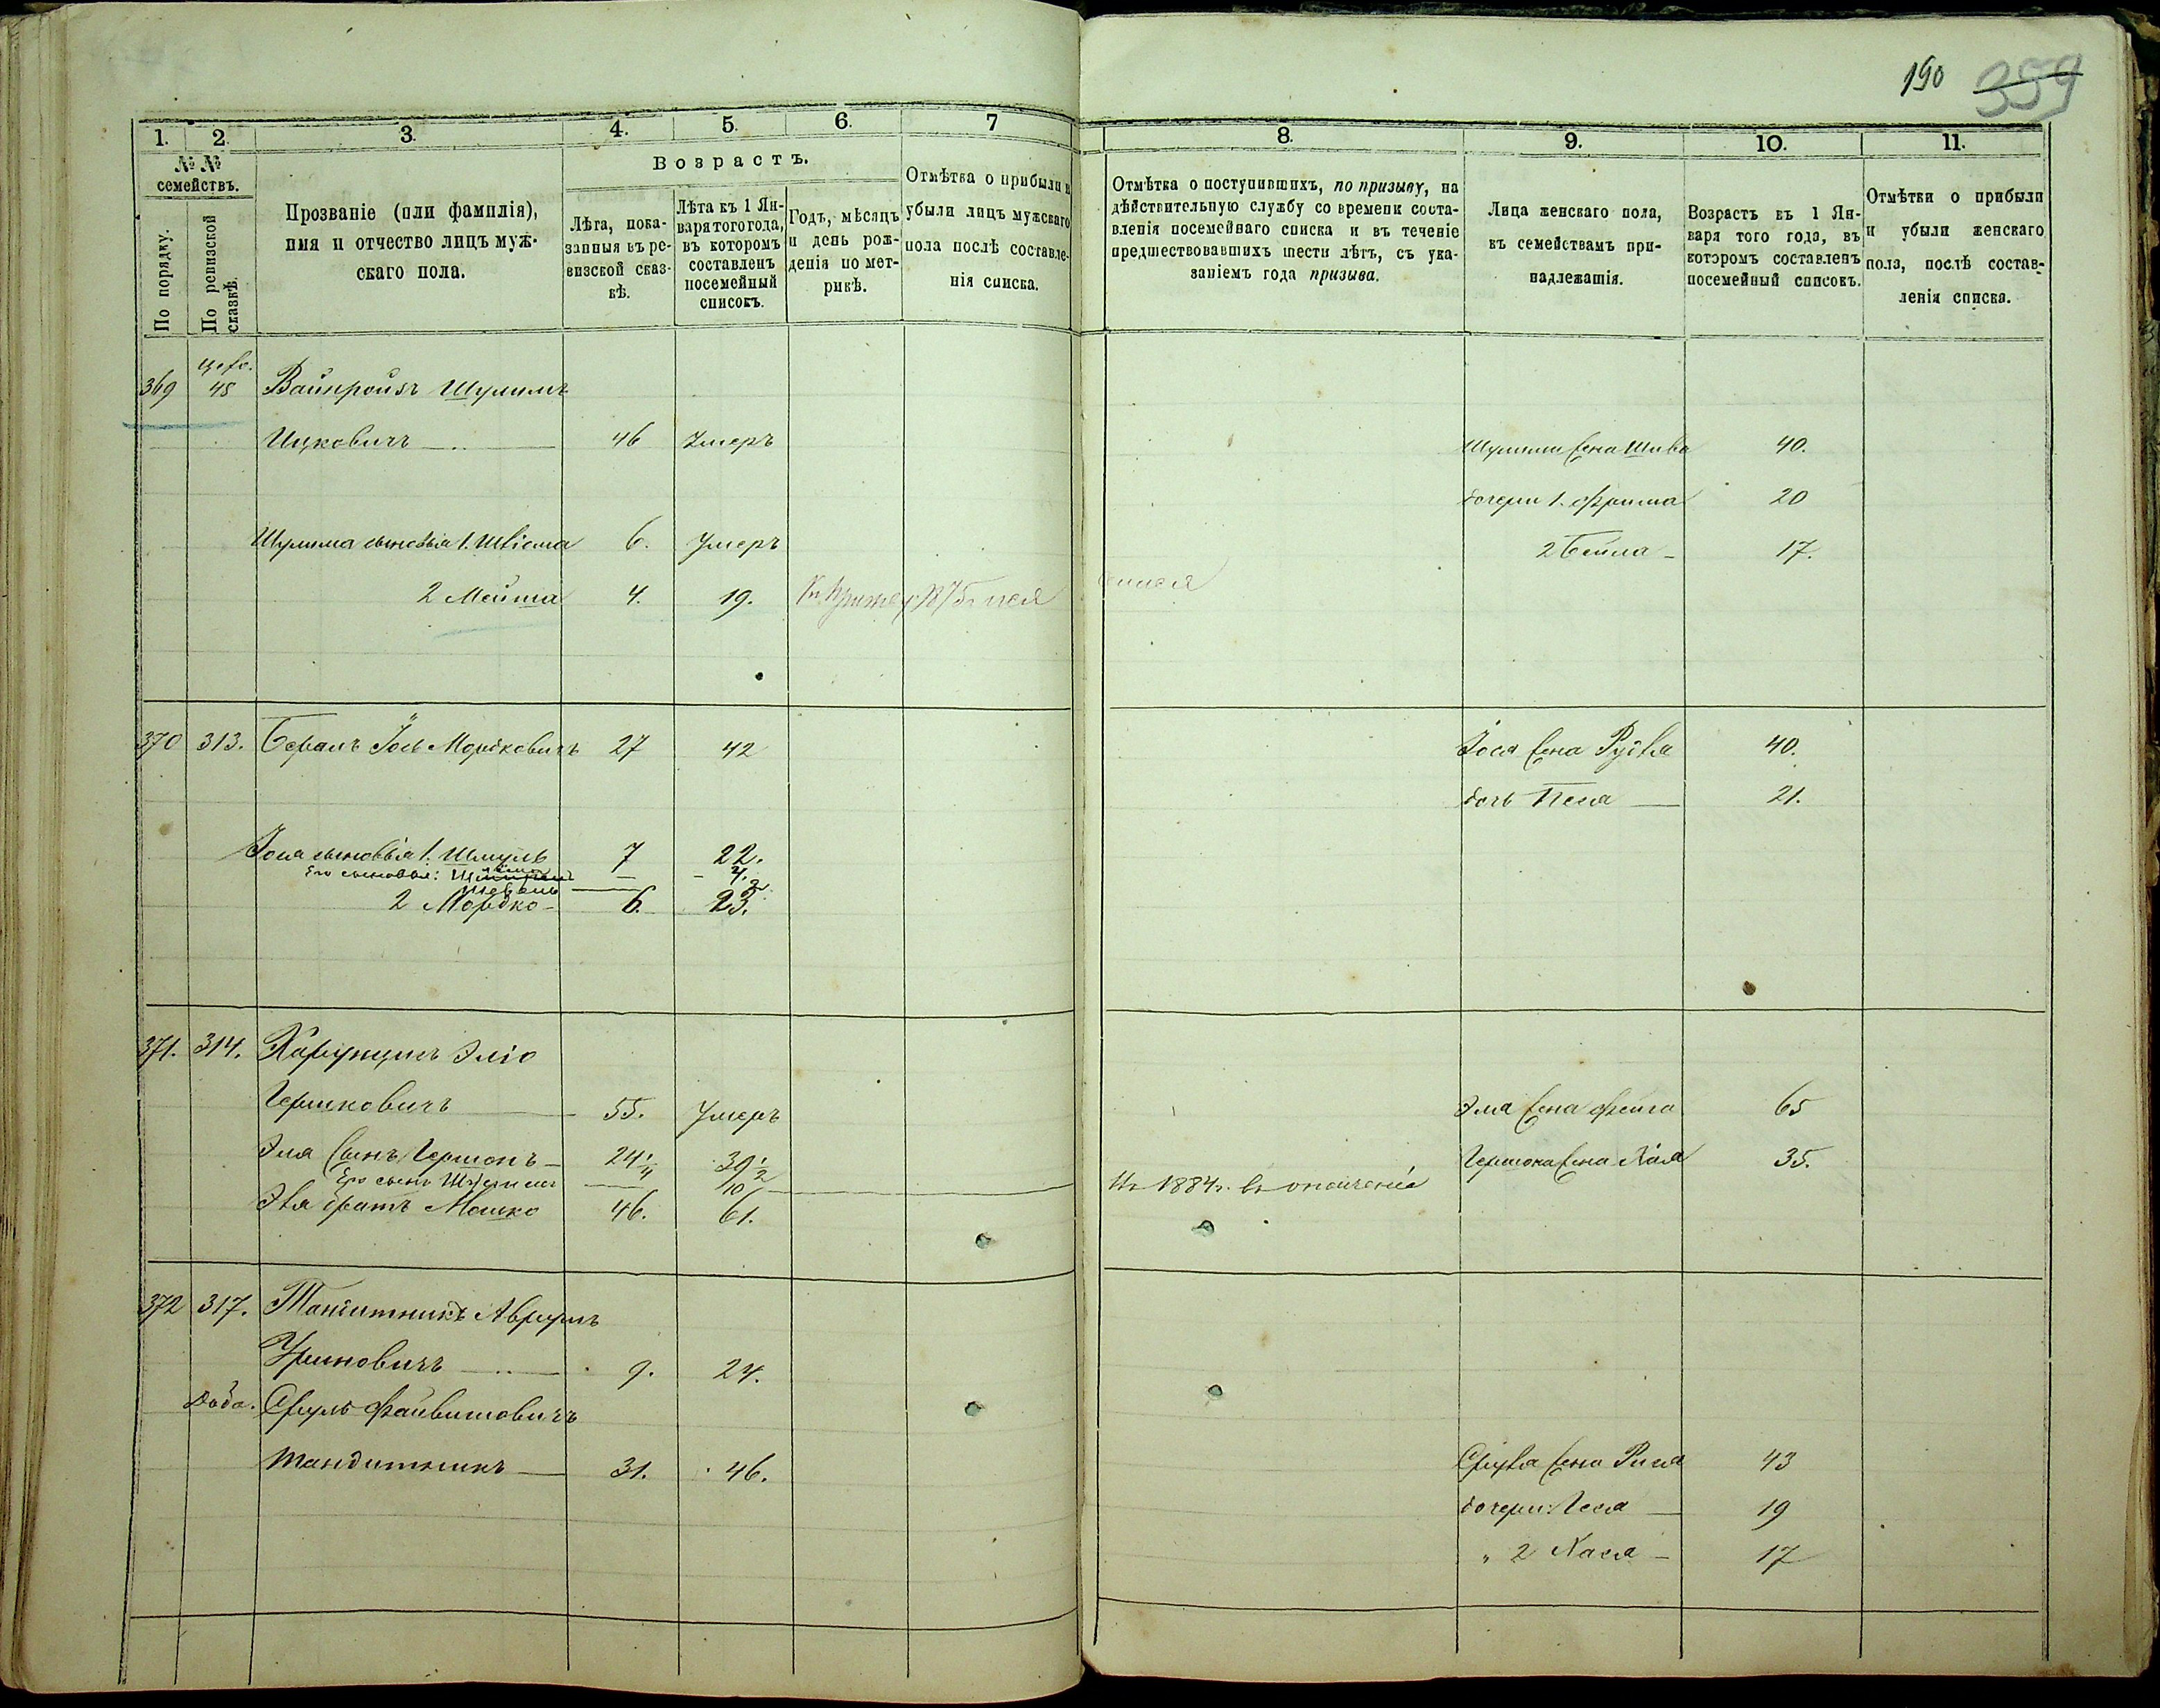 190 359
1. 2. 3. 4. 5. 6. 7
№ №
семействъ.
По порядку.
По ревизской сказкѣ.
Прозваніе (или фамилія),
имя и отчество лицъ муж-
скаго пола.
Возрастъ.
Лѣта, пока-
занныя въ ре-
визской сказ-
кѣ.
Лѣта къ 1 Ян-
варя того года,
въ которомъ
составленъ
посемейный
списокъ.
Годъ, мѣсяцъ
и день рож-
денія по мет-
рикѣ.
Отмѣтка о прибыли и
убыли лицъ мужскаго
пола послѣ составле-
нія списка.
8. 9. 10. 11.
Отмѣтка о поступившихъ, по призыву, на
дѣйствительную службу со времени соста-
вленія посемейнаго списка и въ теченіе
предшествовавшихъ шести лѣтъ, съ ука-
заніемъ года призыва.
Лица женскаго пола,
къ семействамъ при-
надлежащія.
Возрастъ къ 1 Ян-
варя того года, въ
которомъ составленъ
посемейный списокъ.
Отмѣтки о прибыли
и убыли женскаго
пола, послѣ состав-
ленія списка.
369 48 Шулимъ
Ицковичъ 46 Умеръ
Шулима жена Шива 40.
дочери 1. Фрима 20
Шулима сыновья 1. 6. Умеръ
2 Бейла 17.
2 Мейша 4. 19.
370 313. Іось Мордковичъ 27 42
Іося жена Рухля 40.
дочь Песя 21.
Іося сыновья 1. Шмуль 7 22.
Его сыновья: 4.
2 Мордко 6. 23.
371. 314. Эліо
Гершковичъ 55. Умеръ
Эля жена Фейга 65
Эля сынъ Гершонъ 24 1/4 39 1/2
Гершона жена Хая 35.
Его сынъ 10
Въ 1884 г. въ ополченіе
Эля братъ Мошко 46. 61.
372 317. Тандитникъ Аврумъ
9. 24.
Доба. Сруль Файвишовичъ
Тандитникъ 31. 46.
Сруля жена Рися 43
дочери: Гася 19
" 2 Хася 17